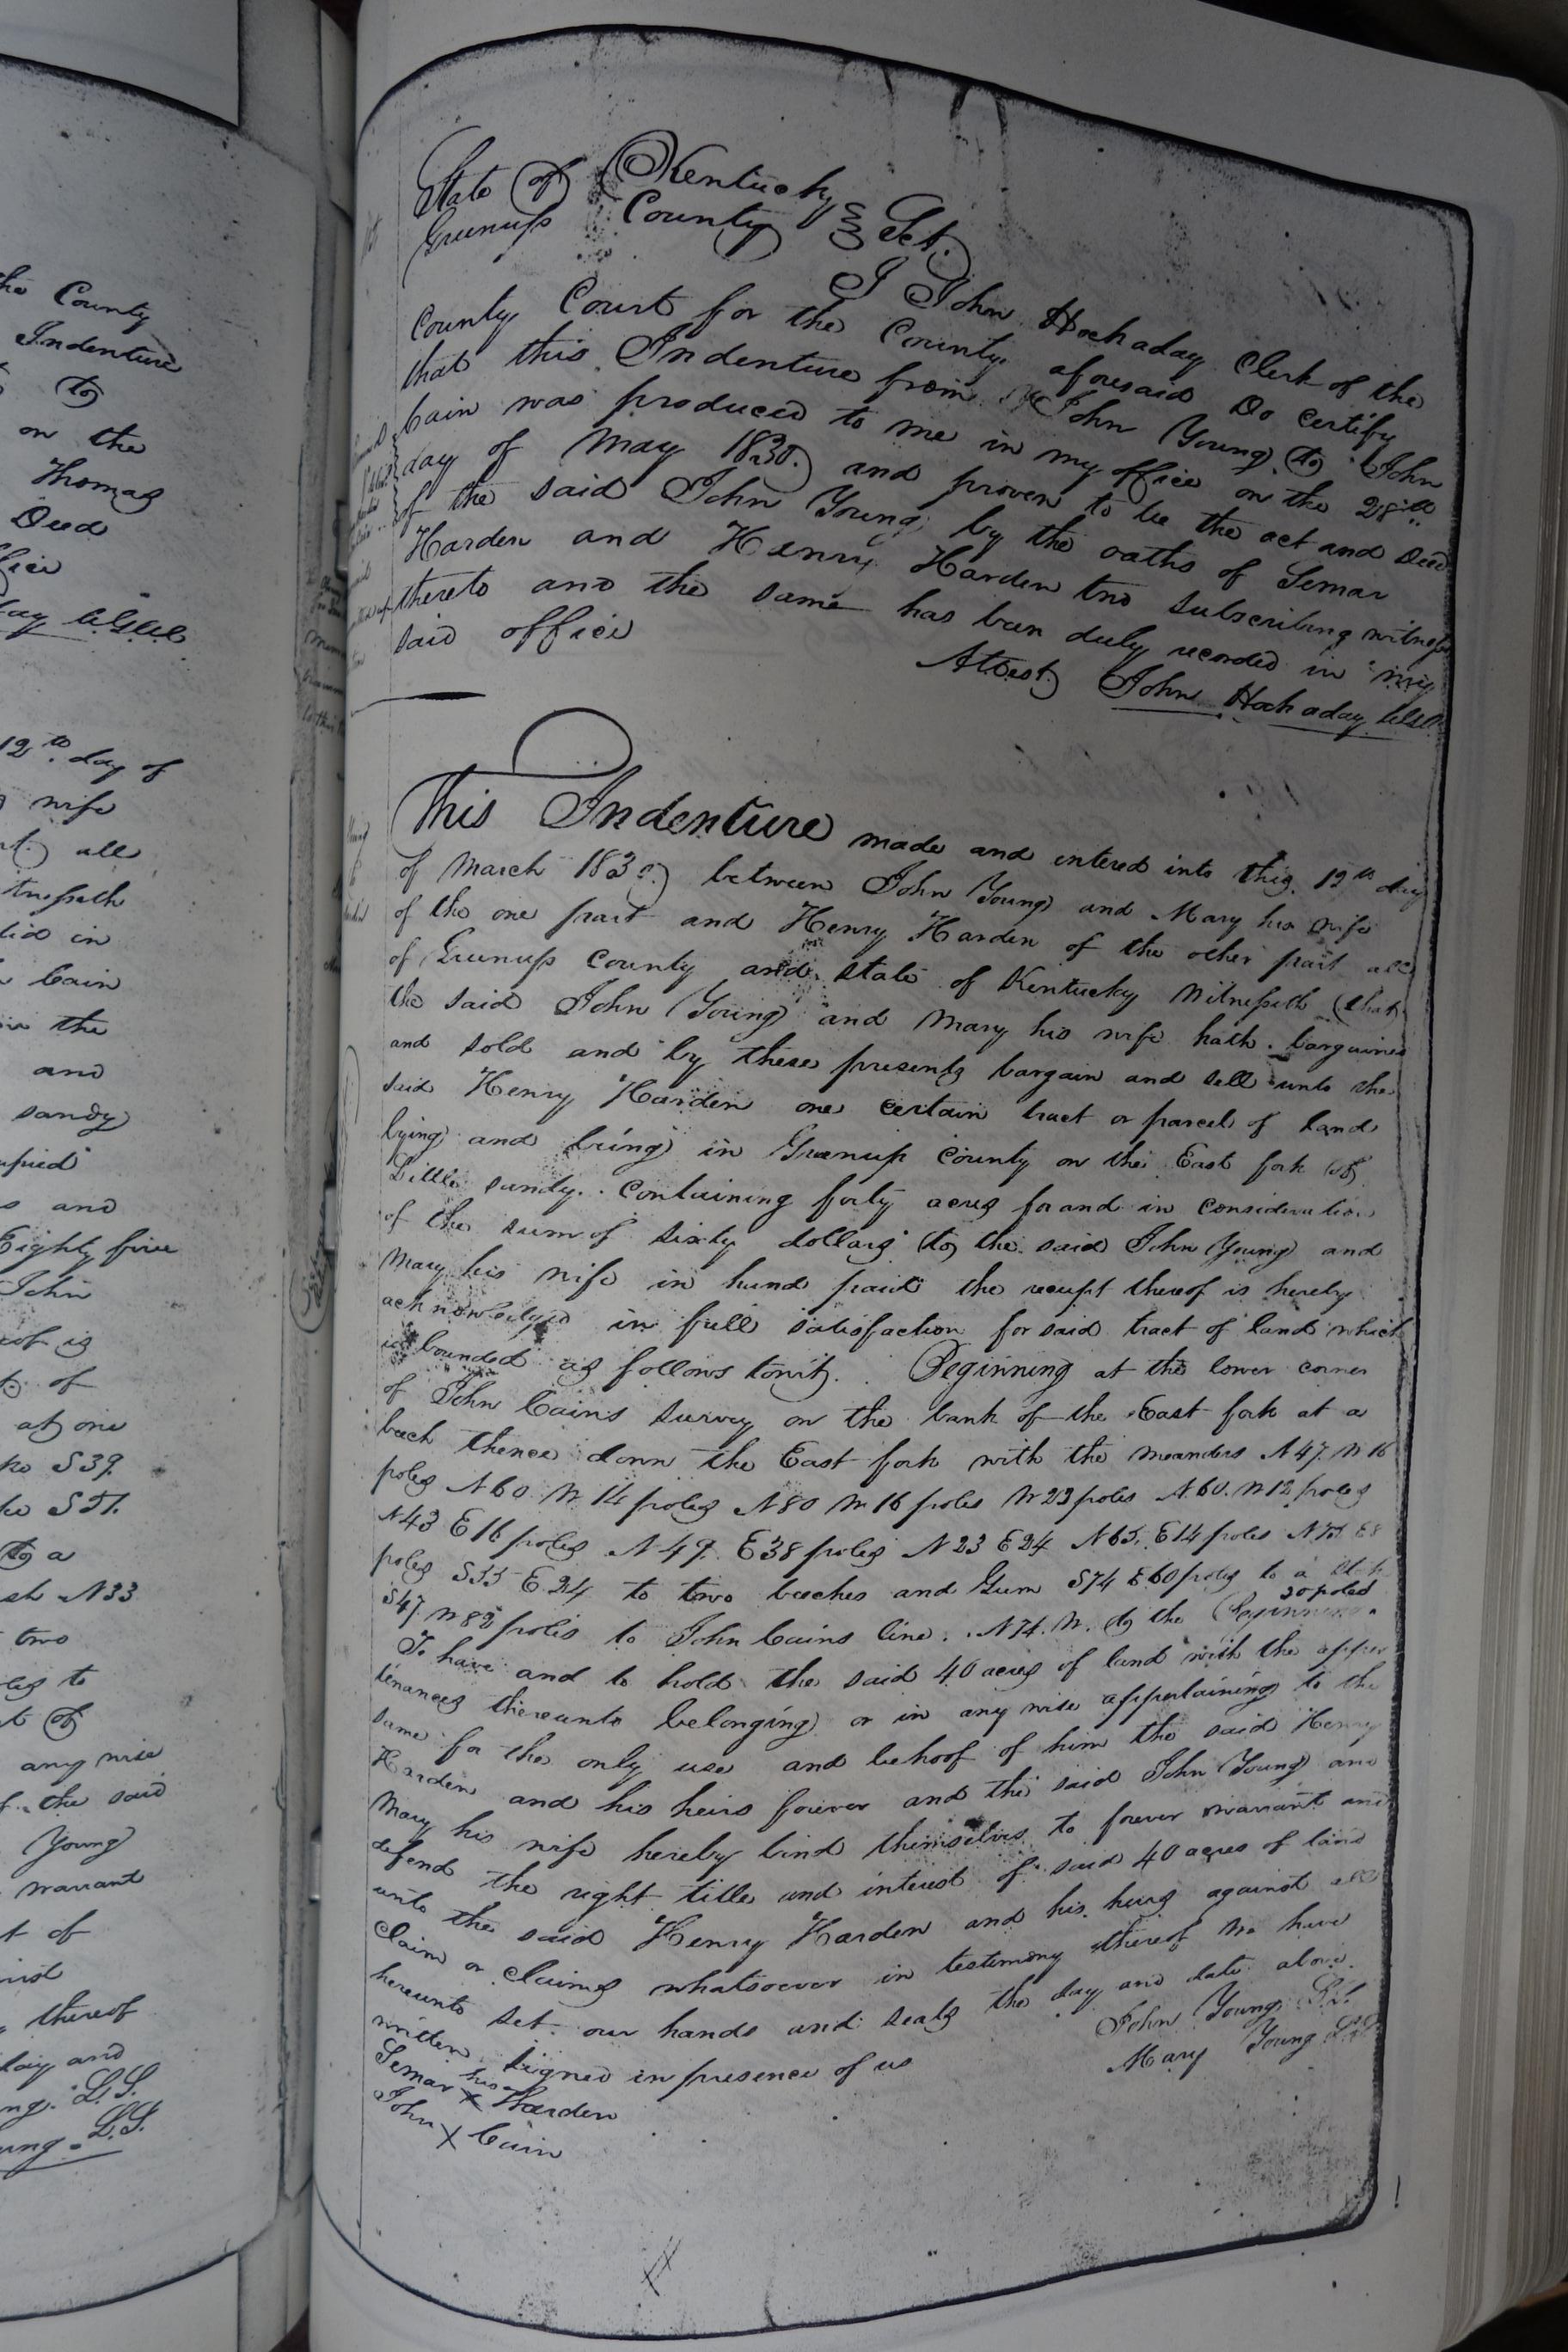 he County
Indenture
to
on the
Thomas
Deed
fice
day C.G.C.C.
12th. day of
wife
rt. all
tnesseth
lid in
Cain
in the
and
sandy
s and
Eighty five
John
eof is
of
at one
S39.
S51.
to a
sh N33
two
les to
t of
any wise
f. the said
Young
warrant
t of
thereof
day and
ng. L.S.
ung. L.S.
State of Kentucky
Greenup County Sct.
I John Hockaday Clerk of the
County Court for the County aforesaid Do certify
that this Indenture from John Young to John
Cain was produced to me in my office on the 28th
day of May 1830. and proven to be the act and Deed
of the said John Young by the oaths of Lemar
Harden and Henry Harden two subscribing witnesses
thereto and the same has been duly recorded in my
said office
Attest John Hockaday
This Indenture made and entered into this 12th day
of March 1830. between John Young and Mary his wife
of the one part and Henry Harden of the other part all
of Greenup County and state of Kentucky Witnesseth that
the said John Young and Mary his wife hath bargained
and sold and by these presents bargain and sell unto the
said Henry Harden one certain tract or parcel of land
lying and being in Greenup County on the East fork of
Little sandy. Containing forty acres for and in consideration
of the sum of sixty dollars to the said John Young and
Mary his wife in hand paid the receipt thereof is hereby
acknowledged in full satisfaction for said tract of land which
is bounded as follows towit. Beginning at the lower corner
of John Cains survey on the bank of the East fork at a
beech thence down the East fork with the meanders N47. W16
poles N60 W14 poles N80 W16 poles W23 poles N.60. W12 poles
N43 E16 poles N49. E38 poles N23 E24 N65. E14 poles N75 E8
poles S55 E.24 to two beeches and Gum S74 E60 poles to a
S47. W82 poles to John Cains line. N74. W. 30 poles to the Beginning.
To have and to hold the said 40 acres of land with the appur
tenances thereunto belonging or in any wise appertaining to the
same for the only use and behoof of him the said Henry
Harden and his heirs forever and the said John Young and
Mary his wife hereby bind themselves to forever warrant and
defend the right title and interest of said 40 acres of land
unto the said Henry Harden and his heirs against all
claim or claims whatsoever in testimony thereof We have
hereunto set our hands and seals the day and date above
written signed in presence of us
John Young L.S.
Mary Young L.S.
Lemar his X Harden
John X Cain